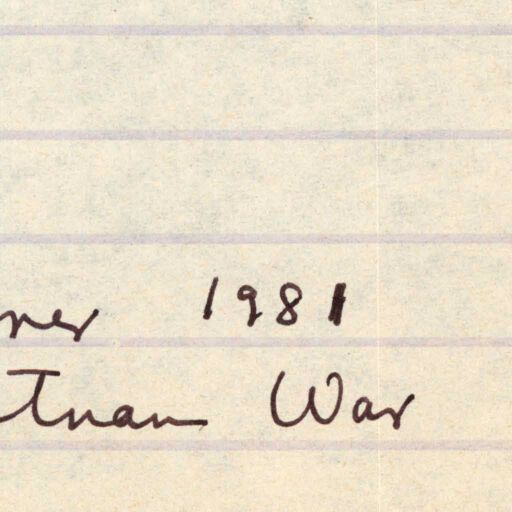 ner 1981
tnam War